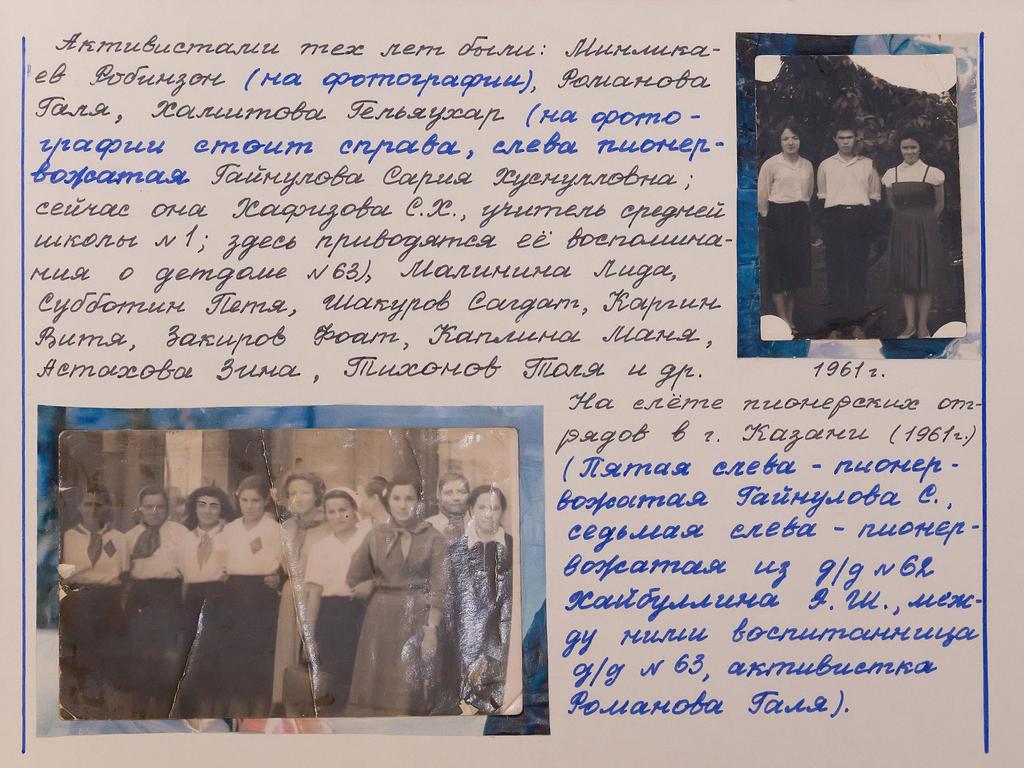 Активистами тех лет были: Минлика-
ев Робинзон (на фотографии), Романова
Галя, Хамитова Гельяухар (на фото-
графии стоит справа, слева пионер-
вожатая Гайнулова Сария Хуснулловна;
сейчас она Хафизова С.Х., учитель средней
школы №1; здесь приводятся её воспомина-
ния о детдоме №63), Малинина Лида,
Субботин Петя, Шакуров Сагдат, Каргин
Витя, Закиров Фоат, Каплина Маня,
Астахова Зина, Тихонов Толя и др.
1961 г.
На слёте пионерских от-
рядов в г. Казани (1961г.)
(Пятая слева - пионер-
вожатая Гайнулова С.,
седьмая слева - пионер-
вожатая из д/д №62
Хайбуллина Я. Ш., меж-
ду ними воспитанница
д/д №63, активистка
Романова Галя).